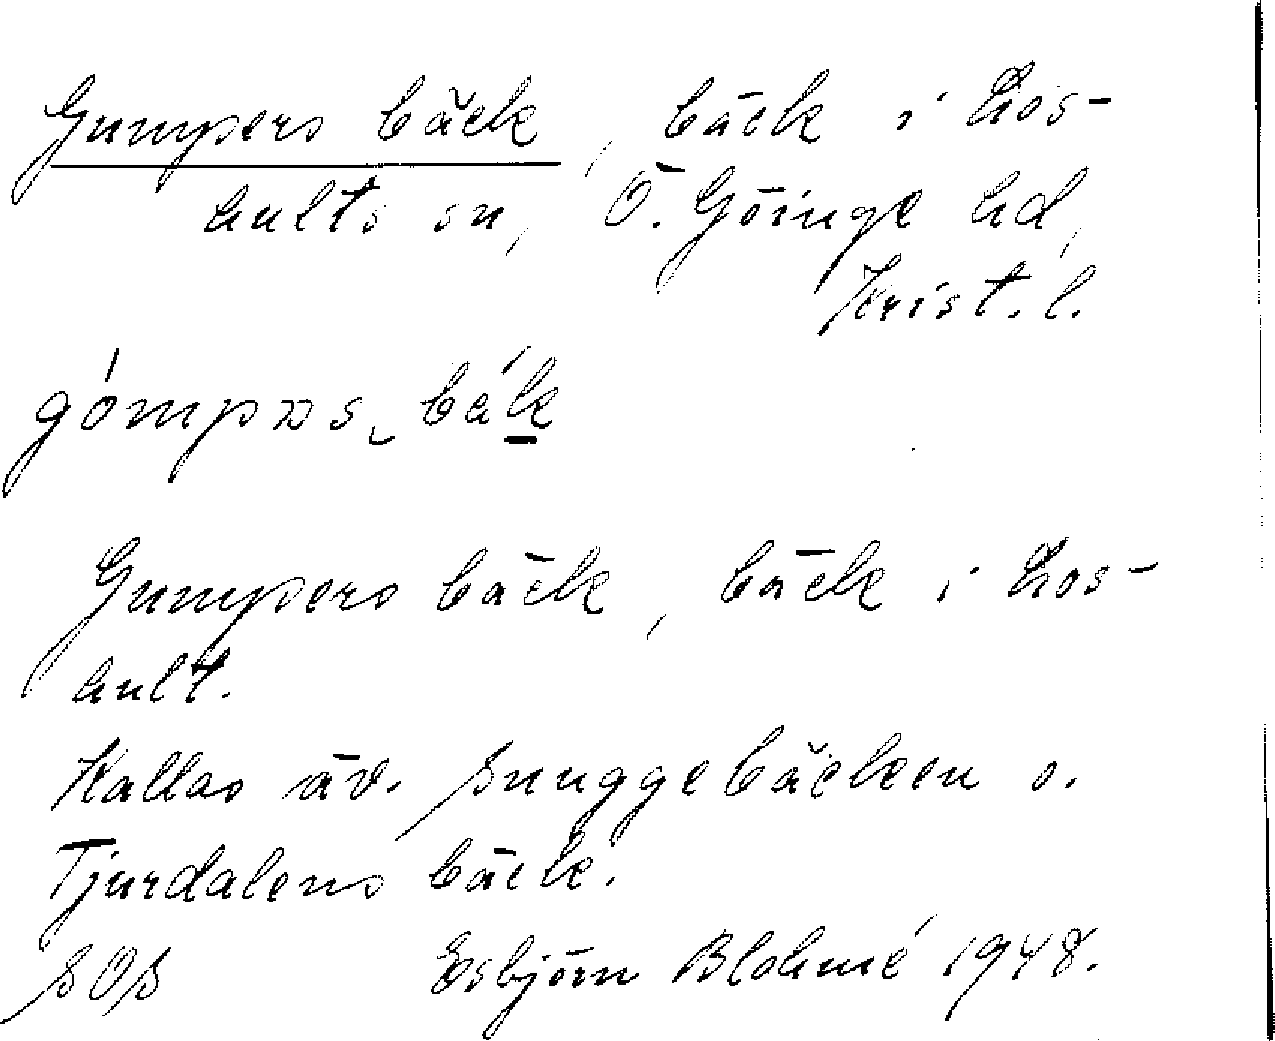 Gumpers bäck, bäck i Los-
hults sn, Ö. Göinge hd,
Krist. l.
Gumpers bäck, bäck i Los-
hult.
Kallas äv. Snuggebäcken o.
Tjurdalens bäck.
SOS Esbjörn Blohmé 1948.